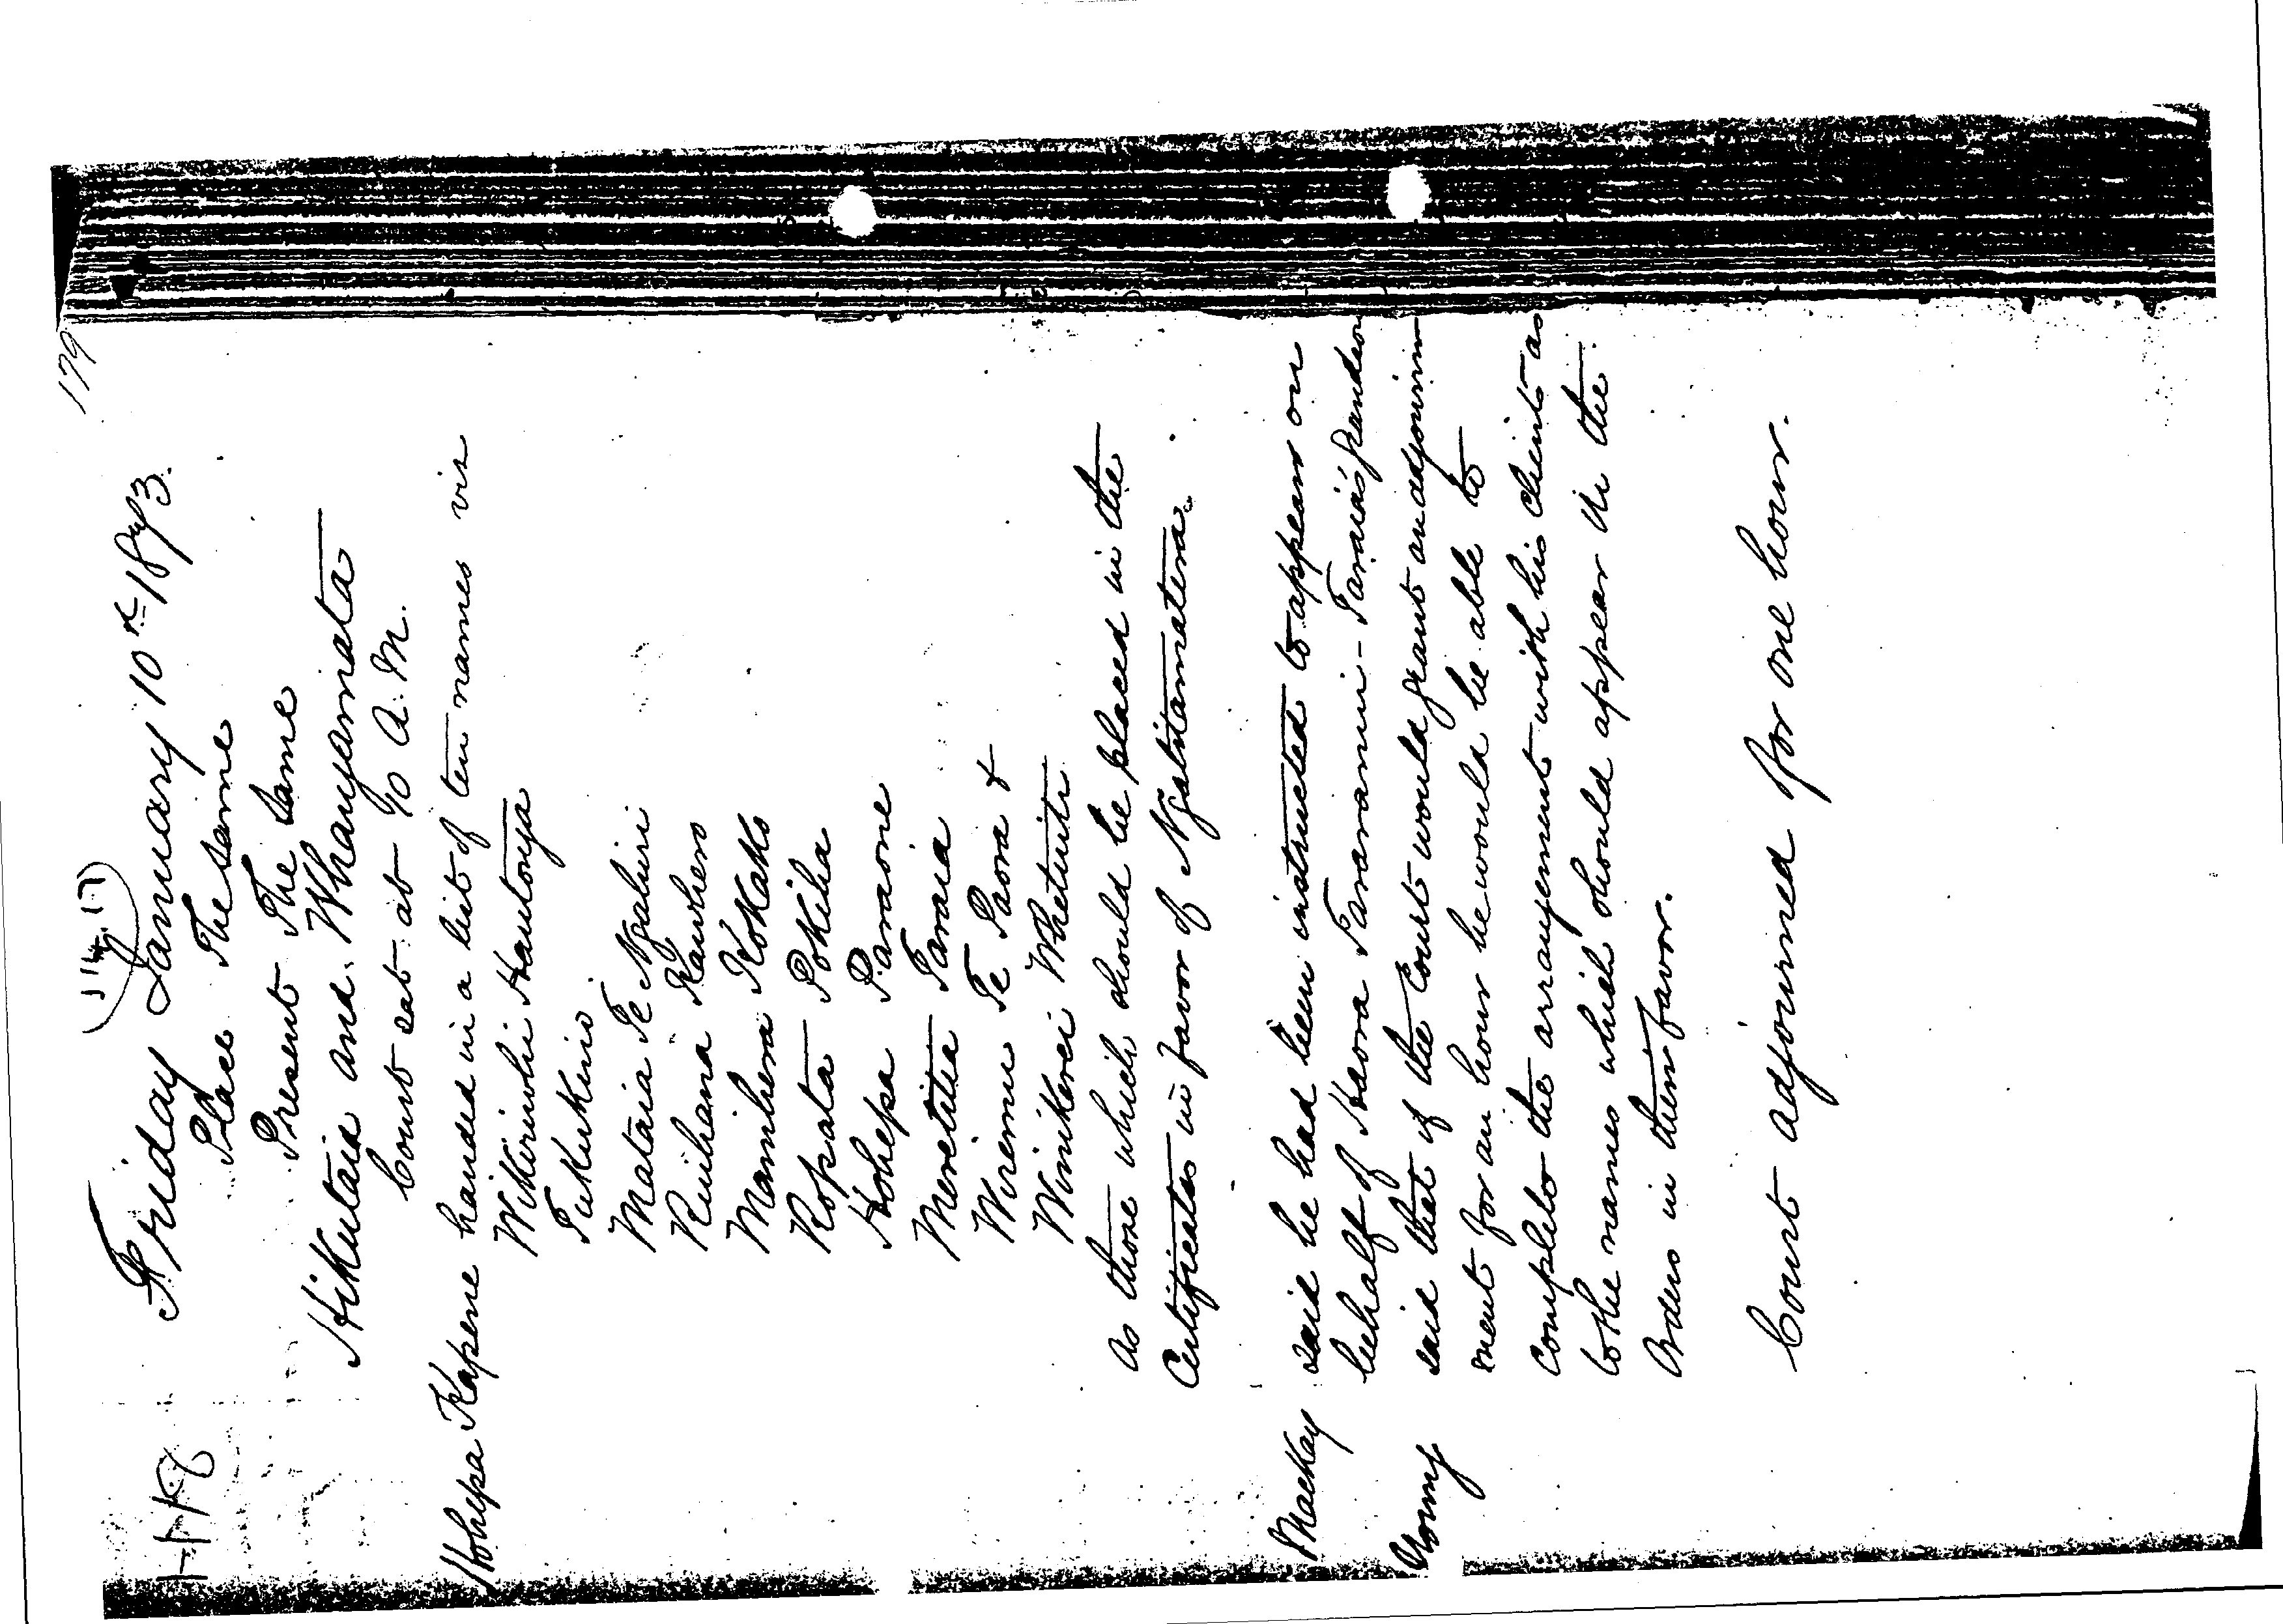 179
Friday January 10th 1873.
Place The same
Present The same
Hikutaia and Whangamata
Court sat at 10 A.M.
Hohepa Kapene handed in a list of ten names viz
Wikiriwhi Hautonga
Tukukino
Mataia Te Ngahuri
Ruihana Kawhero
Mambera Kokako
Ropata Pokiha
Hohepa Paraone
Meretitia Taraia
Wiremu Te Paora &
Winikerei Whetuiti
as those which should be placed in the
Certificates in favor of Ngatitamatera.
Mackay said he had been instructed to appear on
behalf of Haora Tararanui - Taraia's grandson
Young said that if the Court would grant an adjourn
ment for an hour he would be able to
complete the arrangement with his clients as
to the names which should appear in the
Orders in their favor.
Court adjourned for one hour.